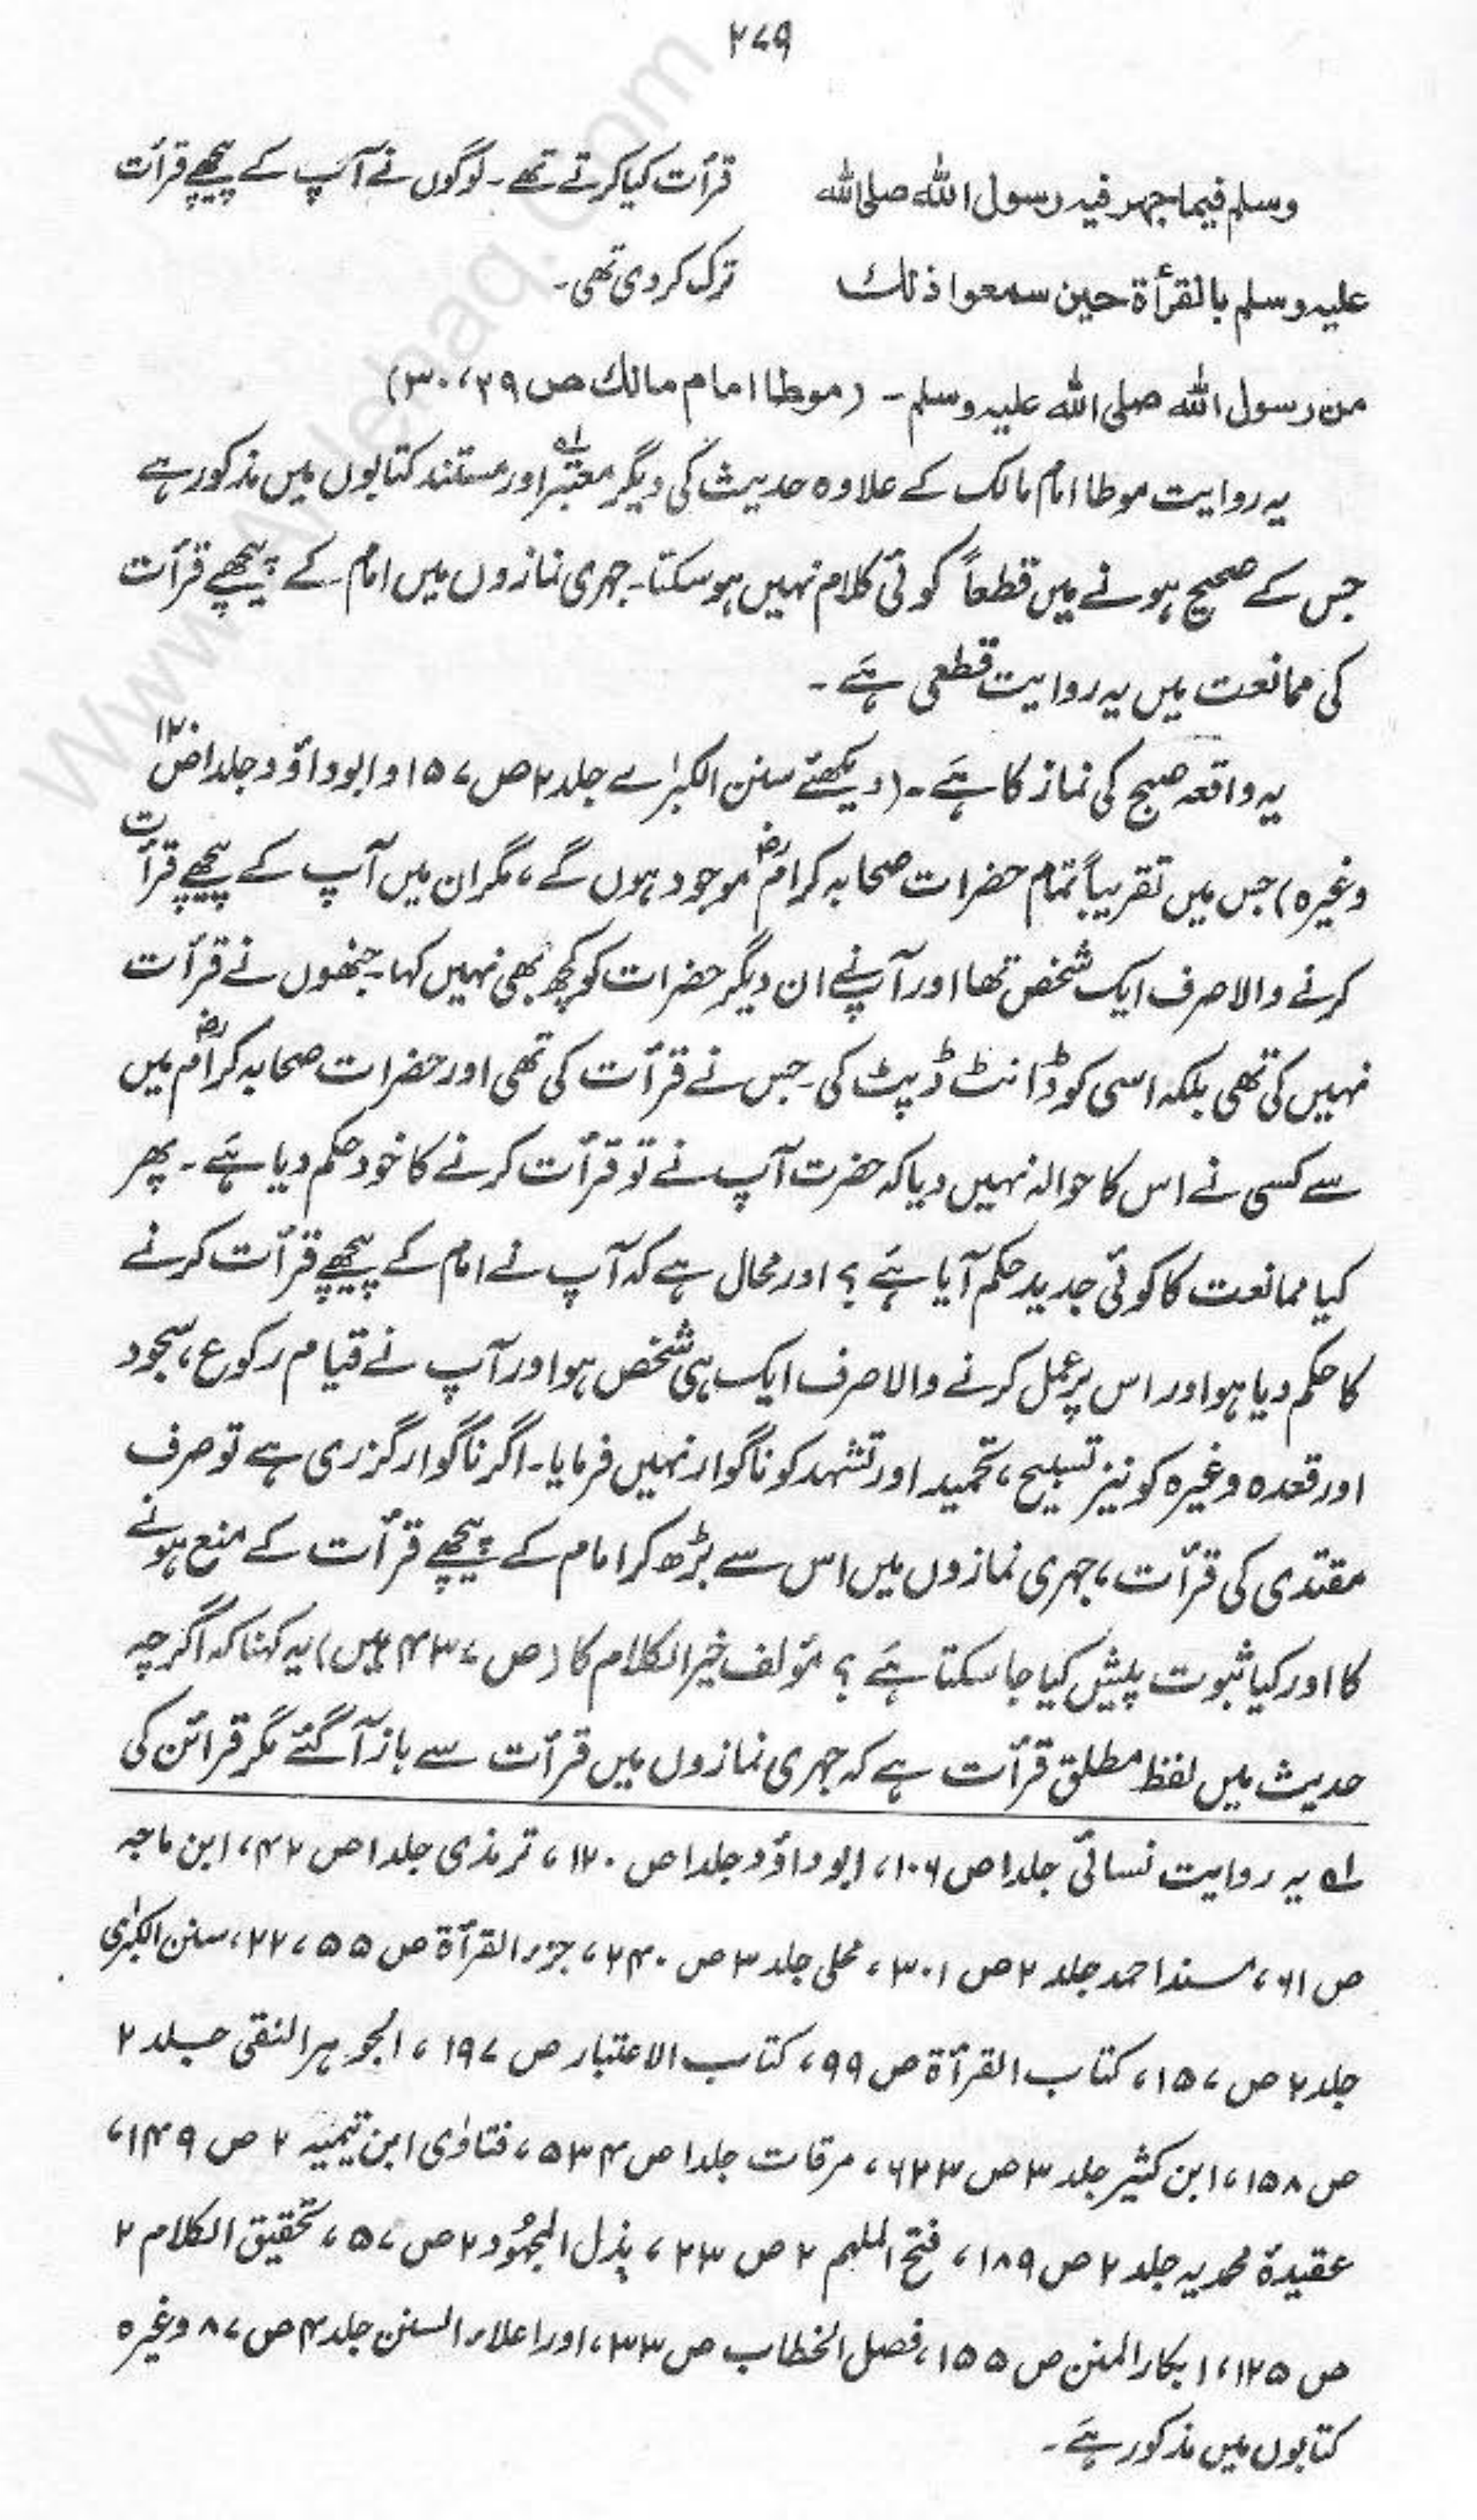 ۲۷۹
وسلم فیما جهر فیه رسول الله صلی الله
علیه وسلم بالقرأة حین سمعوا ذلك
من رسول الله صلی الله علیه وسلم - (موطا امام مالك ص ۲۹، ۳۰)
قرأت کیا کرتے تھے۔ لوگوں نے آپ کے پیچھے قرأت
ترک کر دی تھی۔
یہ روایت موطا امام مالک کے علاوہ حدیث کی دیگر معتبر لہ اور مستند کتابوں میں مذکور ہے
جس کے صحیح ہونے میں قطعاً کوئی کلام نہیں ہو سکتا۔ جہری نمازوں میں امام کے پیچھے قرأت
کی ممانعت میں یہ روایت قطعی ہے۔
یہ واقعہ صبح کی نماز کا ہے۔ (دیکھئے سنن الکبرٰے جلد ۲ ص ۱۵۷ و ابوداؤد جلد ۱ ص ۱۲۰
وغیرہ) جس میں تقریباً تمام حضرات صحابہ کرامؓ موجود ہوں گے، مگر ان میں آپ کے پیچھے قرأت
کرنے والا صرف ایک شخص تھا اور آپ نے ان دیگر حضرات کو کچھ بھی نہیں کہا۔ جنھوں نے قرأت
نہیں کی تھی بلکہ اسی کو ڈانٹ ڈپٹ کی۔ جس نے قرأت کی تھی اور حضرات صحابہ کرامؓ میں
سے کسی نے اس کا حوالہ نہیں دیا کہ حضرت آپ نے تو قرأت کرنے کا خود حکم دیا ہے۔ پھر
کیا ممانعت کا کوئی جدید حکم آیا ہے؟ اور محال ہے کہ آپ نے امام کے پیچھے قرأت کرنے
کا حکم دیا ہو اور اس پر عمل کرنے والا صرف ایک ہی شخص ہو اور آپ نے قیام رکوع، سجود
اور قعدہ وغیرہ کو نیز تسبیح، تحمید اور تشہد کو ناگوار نہیں فرمایا۔ اگر ناگوار گزری ہے تو صرف
مقتدی کی قرأت، جہری نمازوں میں اس سے بڑھ کر امام کے پیچھے قرأت کے منع ہونے
کا اور کیا ثبوت پیش کیا جا سکتا ہے؟ مؤلف خیر الکلام کا (ص ۴۳۷ میں) یہ کہنا کہ اگرچہ
حدیث میں لفظ مطلق قرأت ہے کہ جہری نمازوں میں قرأت سے باز آگئے مگر قرائن کی
لہ یہ روایت نسائی جلد ۱ ص ۱۰۶، ابوداؤد جلد ۱ ص ۱۲۰، ترمذی جلد ۱ ص ۴۲، ابن ماجہ
ص ۶۱، مسند احمد جلد ۲ ص ۳۰۱، محلی جلد ۳ ص ۲۴۰، جزء القرأة ص ۵۵، ۲۲، سنن الکبرٰی
جلد ۲ ص ۱۵۷، کتاب القرأة ص ۹۹، کتاب الاعتبار ص ۱۹۷، الجوہر النقی جلد ۲
ص ۱۵۸، ابن کثیر جلد ۳ ص ۶۲۳، مرقات جلد ۱ ص ۵۳۴، فتاوٰی ابن تیمیہ ۲ ص ۱۴۹،
عقیدۂ محمدیہ جلد ۲ ص ۱۸۹، فتح الملہم ۲ ص ۲۳، بذل المجہود ۲ ص ۵۷، تحقیق الکلام ۲
ص ۱۲۵، ابکار المنن ص ۱۵۵، فصل الخطاب ص ۳۳، اور اعلاء السنن جلد ۴ ص ۸۷ وغیرہ
کتابوں میں مذکور ہے۔